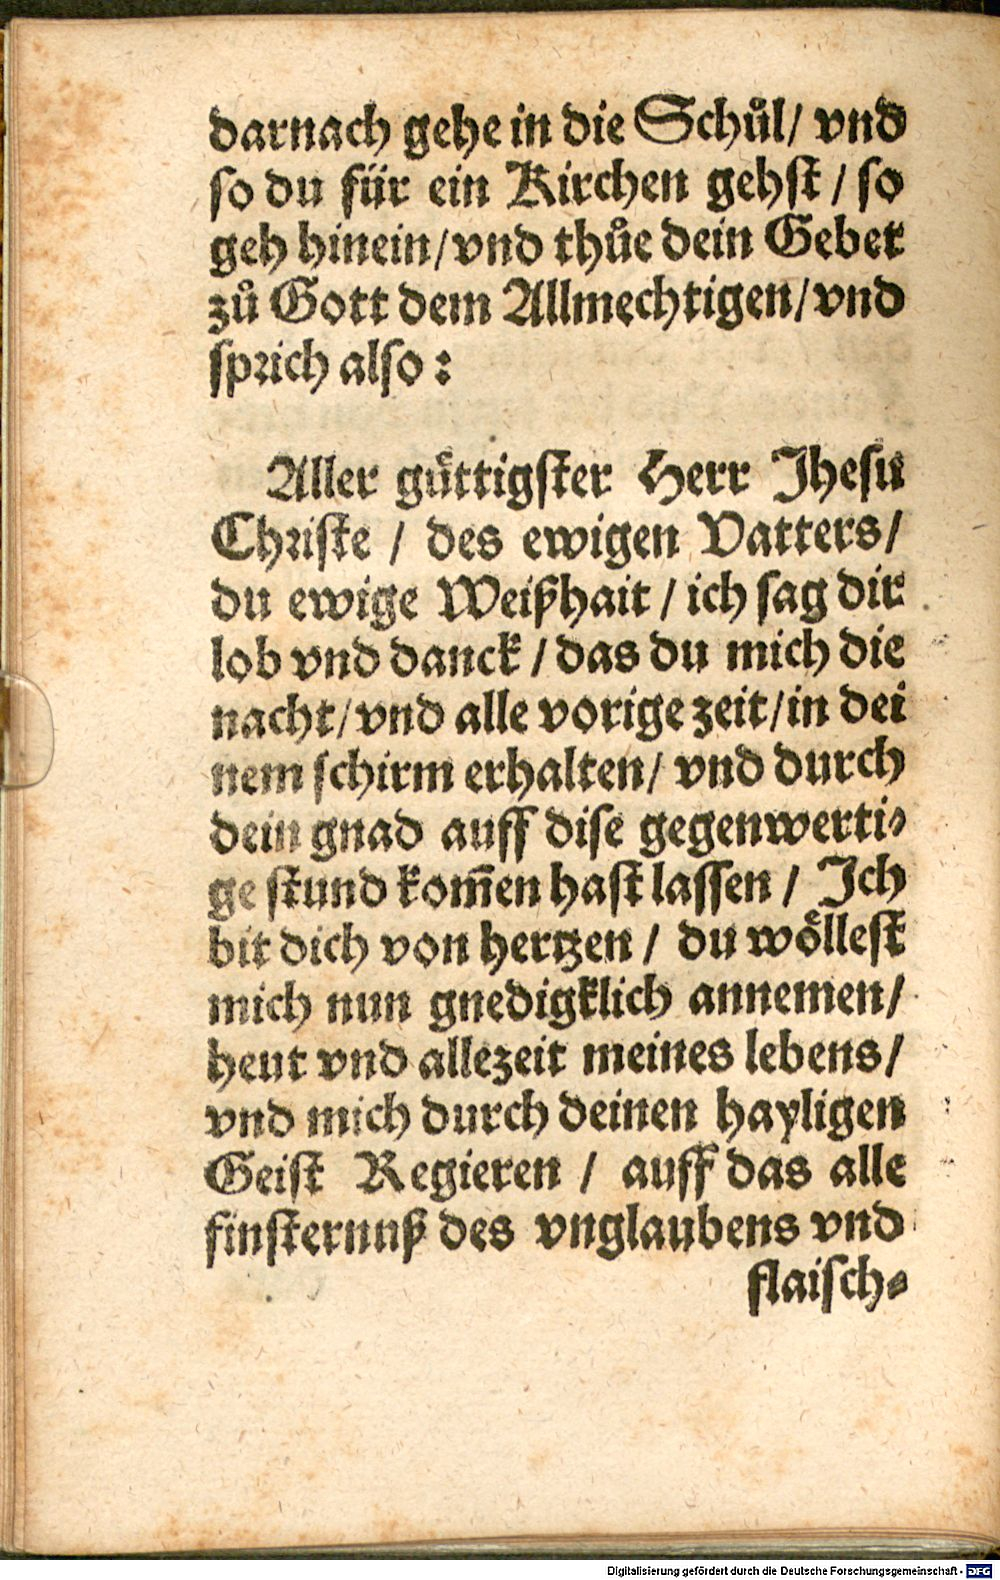 darnach gehe in die Schůl/ vnd
so du für ein Kirchen gehst / so
geh hinein/ vnd thůe dein Gebet
zů Gott dem Allmechtigen/ vnd
sprich also :
Aller gůttigster Herr Jhesu
Christe / des ewigen Vatters/
du ewige Weißhait / ich sag dir
lob vnd danck / das du mich die
nacht/ vnd alle vorige zeit/ in dei
nem schirm erhalten/ vnd durch
dein gnad auff dise gegenwerti-
ge stund kom̃en hast lassen / Jch
bit dich von hertzen / du wöllest
mich nun gnedigklich annemen/
heut vnd allezeit meines lebens/
vnd mich durch deinen hayligen
Geist Regieren / auff das alle
finsternuß des vnglaubens vnd
flaisch-
Digitalisierung gefördert durch die Deutsche Forschungsgemeinschaft - DFG